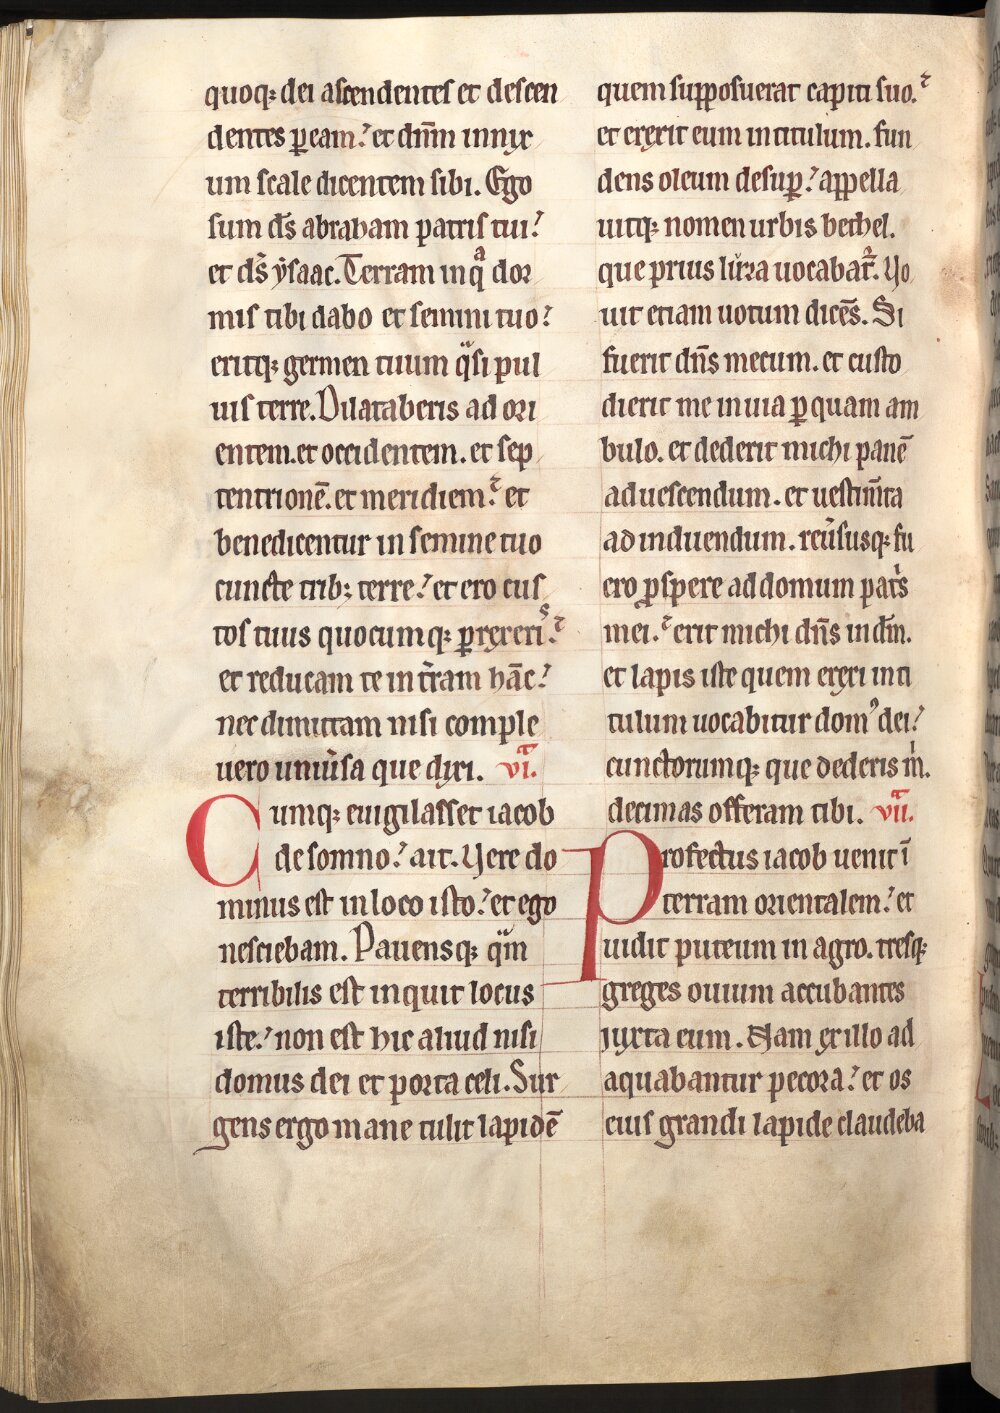 quoqꝫ dei ascendentes et descen
dentes ꝑ eam. et dn̄m innix
um scale dicentem sibi. Ego
sum ds̄ abraham patris tui.
et ds̄ ẏsaac. Terram in qͣ dor
mis tibi dabo et semini tuo.
eritqꝫ germen tuum qͣsi pul
uis terre. Dilataberis ad ori
entem. et occidentem. et sep
tentrionē. et meridiem. et
benedicentur in semine tuo
cuncte tribꝫ terre. et ero cus
tos tuus quocumqꝫ ꝑrexeriˢ.
et reducam te in tr̄am hāc.
nec dimittam nisi comple
uero uniu̓sa que dixi. vi.ͣ
Cumqꝫ euigilasset iacob
de somno. ait. Uere do
minus est in loco isto. et ego
nesciebam. Pauensqꝫ qͣm
terribilis est inquit locus
iste. non est hic aliud nisi
domus dei et porta celi. Sur
gens ergo mane tulit lapidē
quem supposuerat capiti suo.
et erexit eum in titulum. fun
dens oleum desuꝑ. appella
uitqꝫ nomen urbis bethel.
que prius luza uocabat᷑. Uo
uit etiam uotum dicēs. Si
fuerit dn̄s mecum. et custo
dierit me in uia ꝑ quam am
bulo. et dederit michi panē
ad uescendum. et uestim̄ta
ad induendum. reu̓susqꝫ fu
ero ꝓspere ad domum pat̓s
mei. erit michi dn̄s in dm̄.
et lapis iste quem erexi in ti
tulum uocabitur domꝰ dei.
cunctorumqꝫ que dederis mͥ.
decimas offeram tibi. vii.ͣ
Profectus iacob uenit ī
terram orientalem. et
uidit puteum in agro. tresqꝫ
greges ouium accubantes
iuxta eum. Nam ex illo ad
aquabantur pecora. et os
eius grandi lapide claudeba